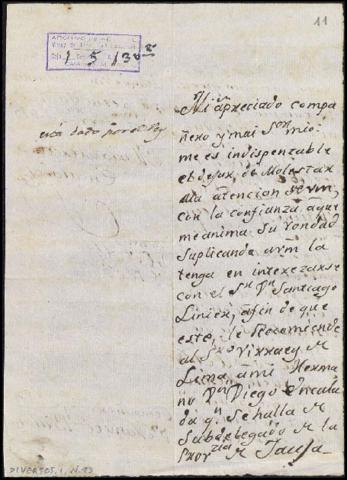 11
ARCHIVO
1 5 / 3
está dado por el
Mi apreciado compa
ñero y mai Sor mio
me es indispensable
el dejar de Molestar
la atencion de vm,
con la confianza q.e
me anima su vondad
suplicando a vm la
tenga en interezarse
con el Sr Dn Santiago
Linier, afin de que
este, le Recomiende
al Exmo Virrey de
Lima a mi Herma
no Dn Diego
da qn. se halla de
Subdelegado de la
Provcia de Jauja
DIVERSOS, 1, N. 93